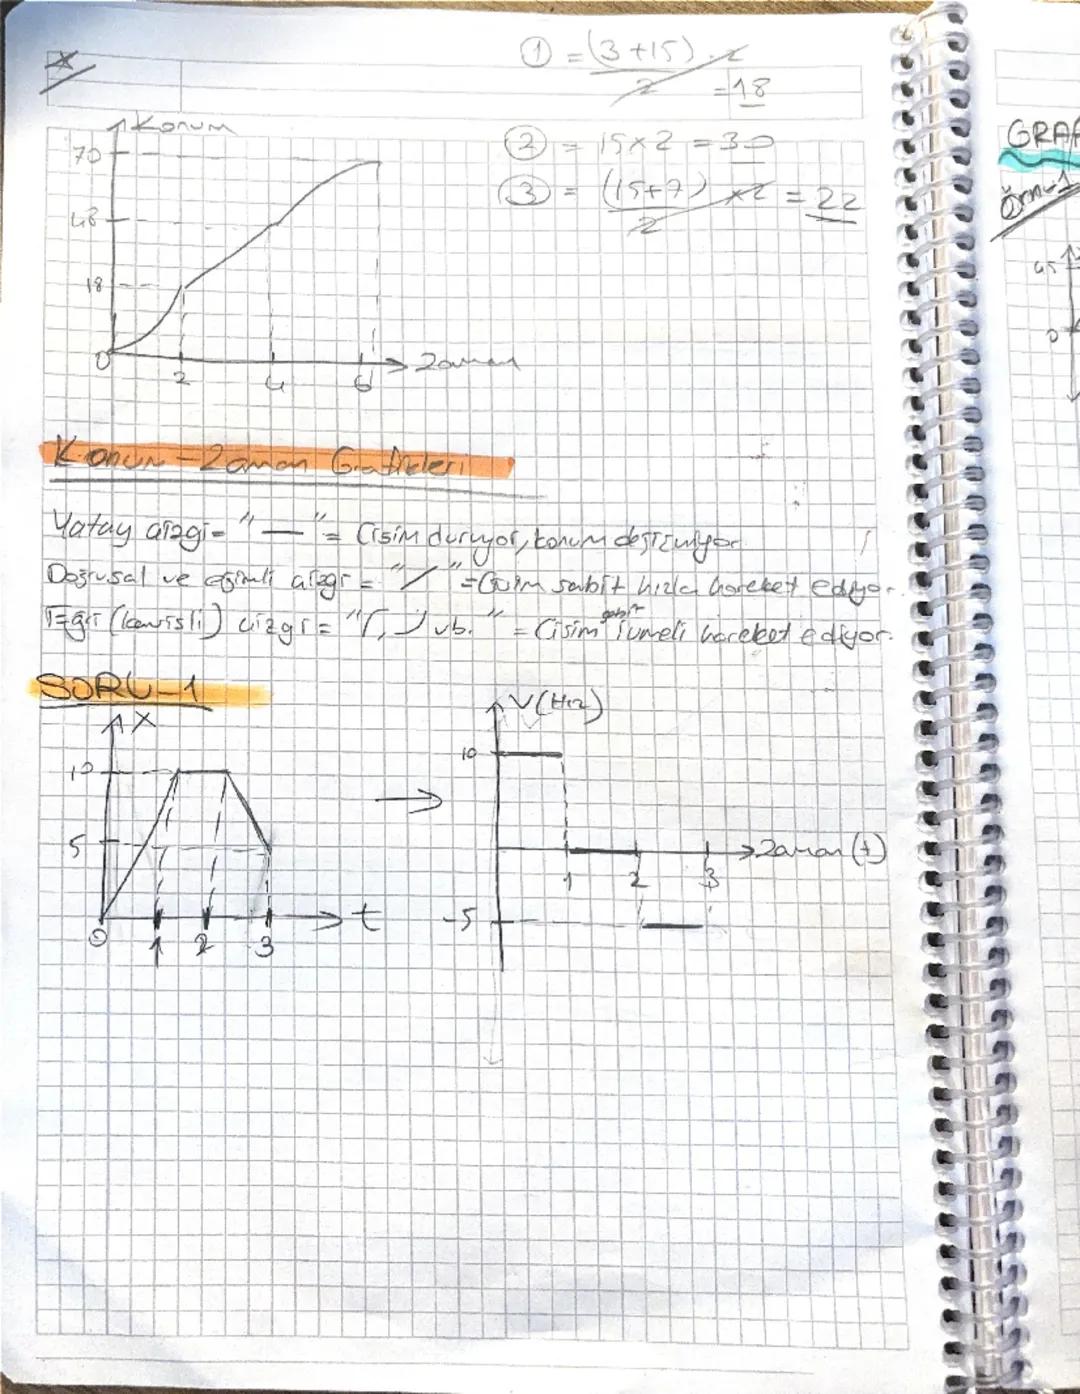 ① = (3+15) . 2 / 2 = 18
Konum
② = 15x2 = 30
③ = (15+7) / 2 x2 = 22
70
48
18
0
2
4
6
Zaman
Konum-Zaman Grafikleri
Yatay çizgi = "—" = Cisim duruyor, konum değişmiyor
Doğrusal ve eğimli çizgi = "/" = Cisim sabit hızla hareket ediyor.
Eğri (kavisli) çizgi = vb." = Cisim sabit ivmeli hareket ediyor.
SORU-1
X
10
5
0
1
2
3
t
→
V(Hız)
10
-5
1
2
3
Zaman(t)
GRAF
Örn-1
45
0